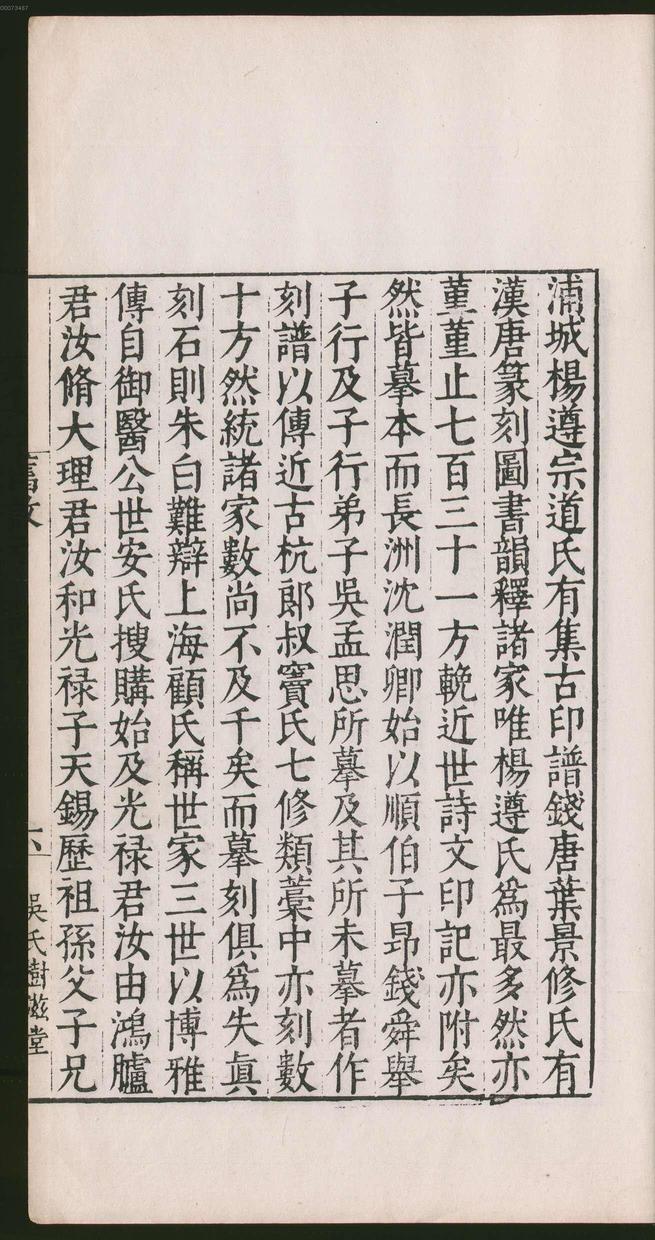 浦城楊遵宗道氏有集古印譜錢唐葉景修氏有
漢唐篆刻圖書韻釋諸家唯楊遵氏爲最多然亦
菫菫止七百三十一方輓近世詩文印記亦附矣
然皆摹本而長洲沈潤卿始以順伯子昂錢舜舉
子行及子行弟子吳孟思所摹及其所未摹者作
刻譜以傳近古杭郎叔寶氏七修類藁中亦刻數
十方然統諸家數尚不及千矣而摹刻俱爲失眞
刻石則朱白難辯上海顧氏稱世家三世以博雅
傳自御醫公世安氏搜購始及光禄君汝由鴻臚
君汝脩大理君汝和光禄子天錫歷祖孫父子兄
吳氏樹滋堂
00073487